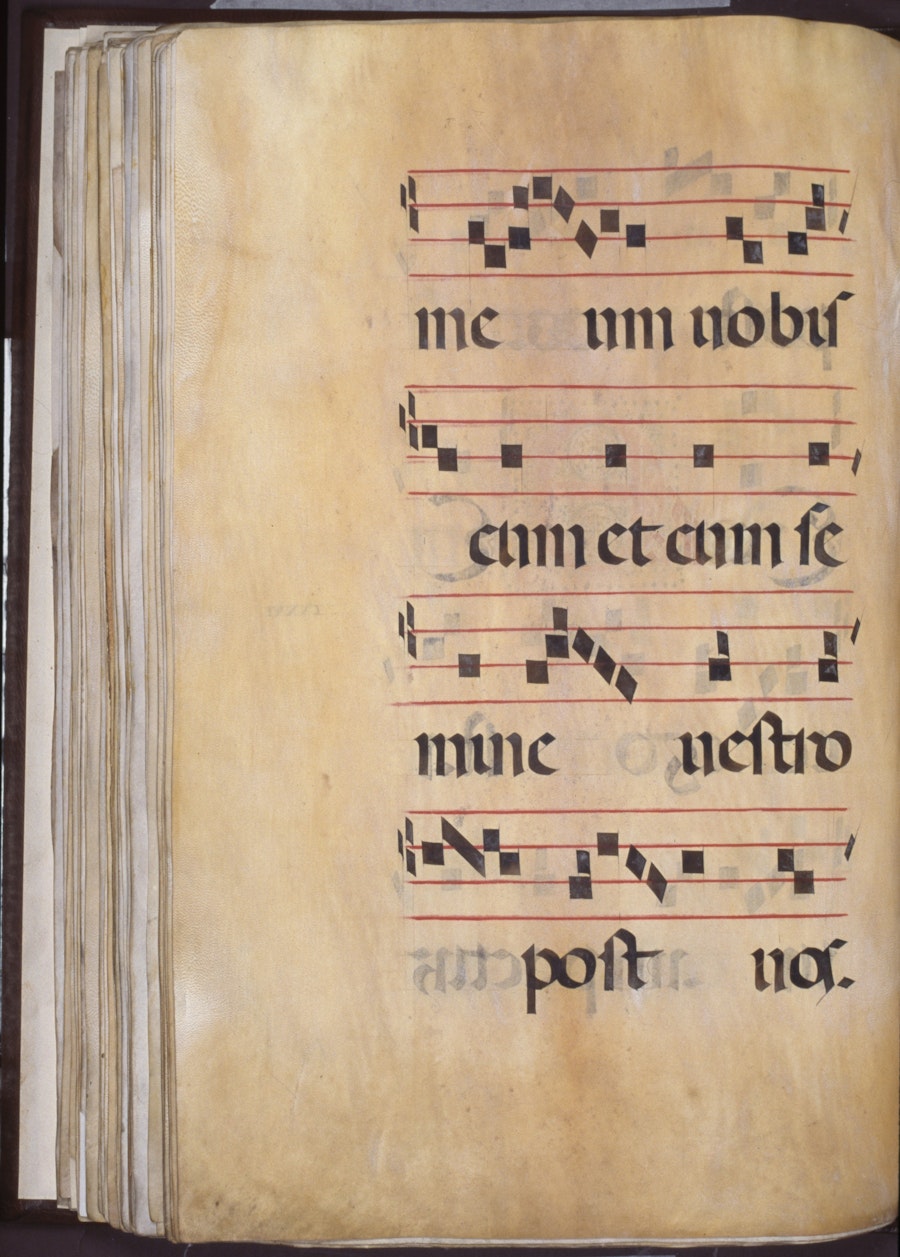 me um uobis
cum et cum se
mine uestro
post uos.